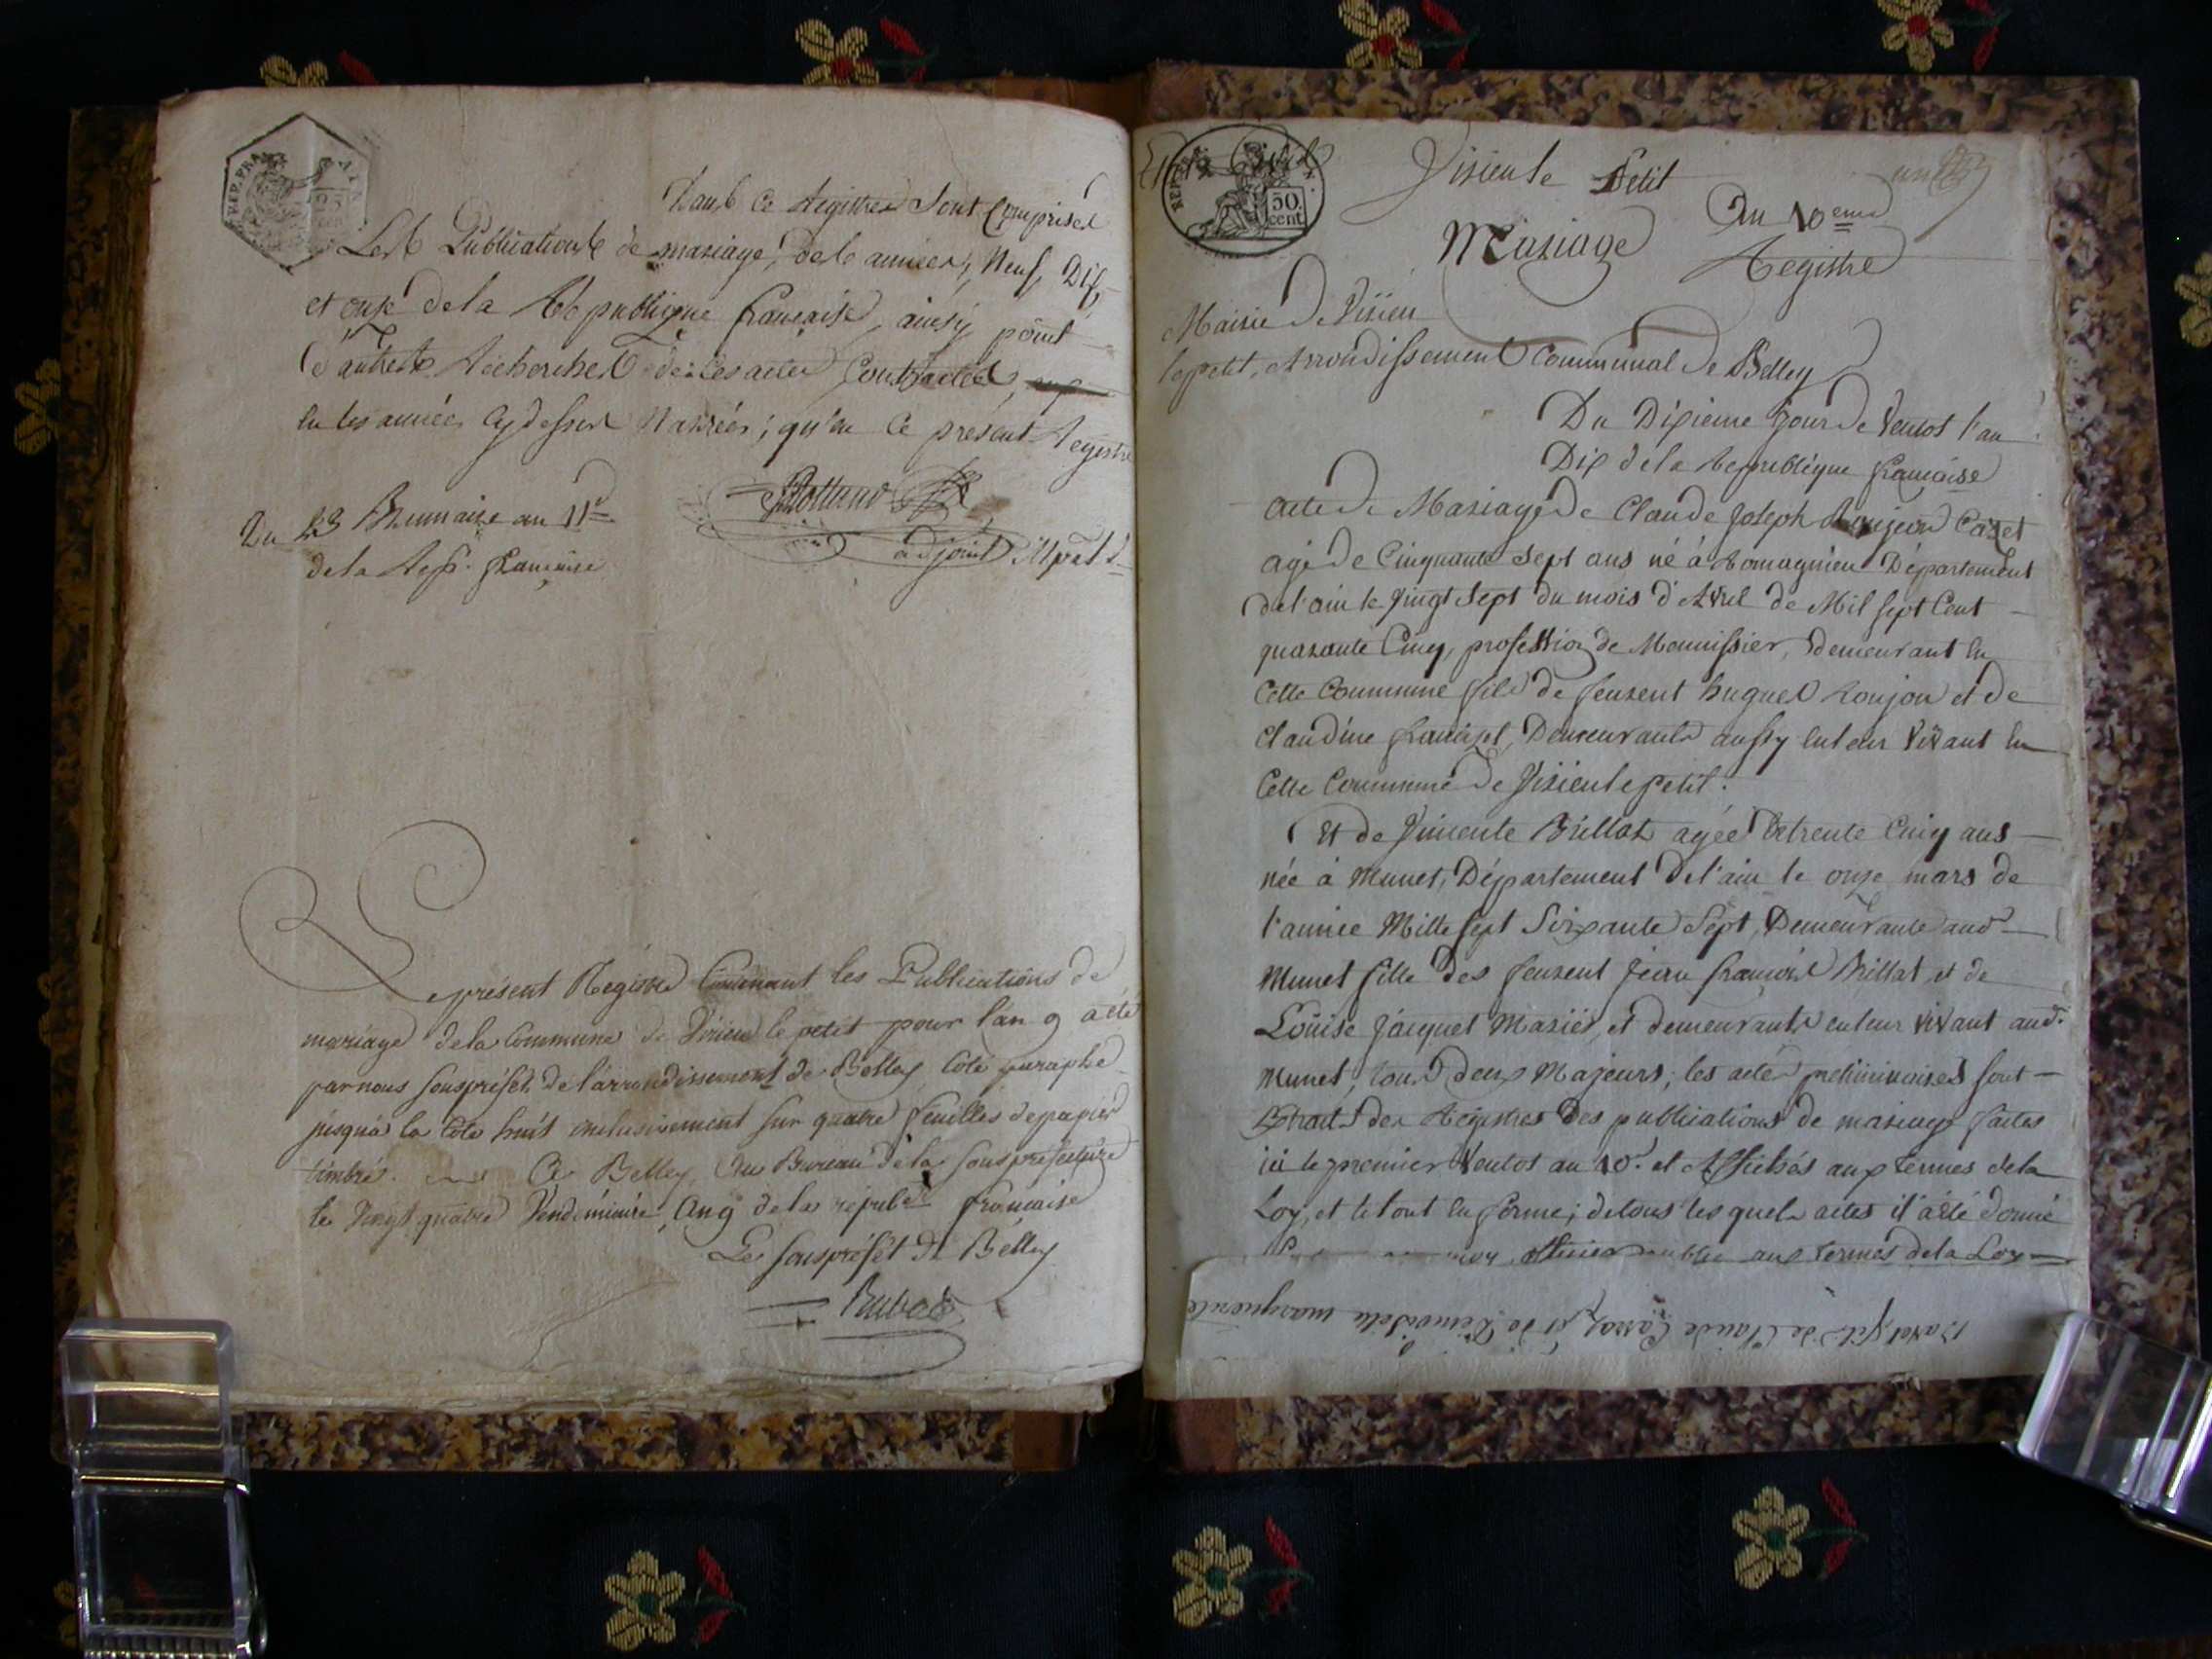 REP. FRA
AIN
25
Dans ce Registre Sont Comprises
Les Publications de mariage, des années, Neuf, Dix,
et onze de la République française, ainsy point
d'autres Recherches des actes Contractés,
en les année cy dessus Narrées; qu'en ce present Registre
Du 23 Brumaire an 11e
de la Rep. française
adjoint Mpal
Le present Registre Contenant les Publications de
mariage de la Commune de Virieu le petit pour l'an 9 a été
par nous sousprefet de l'arrondissement de Belley, Coté paraphé
jusqu'à la Cote huit inclusivement sur quatre feuilles de papier
timbré. A Belley, Au Bureau de la sousprefecture
le Vingt quatre Vendémiaire, An 9 de la répub. française
Le sousprefet de Belley
REP.
50.
cent.
Virieu le Petit
Mariage
Du 10eme
Registre
Mairie De Virieu
le petit, Arrondissement Communal de Belley
Du Dixieme Jour de Ventos l'an
Dix de la Republique francaise
Acte de Mariage de Claude Joseph Roujeon Cazet
agé de Cinquante Sept ans né à Romagnieu Département
de l'ain le Vingt Sept du mois d'Avril de Mil Sept Cent
quarante Cinq, profession de Menuissier, demeurant en
Cette Commune fils de feu huguet Roujon et de
Claudine françoise, Demeurants aussy en leur Vivant en
Cette Commune de Virieu le petit.
Et de Brillat agée de trente Cinq ans
née à Munet, Département de l'ain le onze mars de
l'annee Mille Sept Soixante Sept, Demeurante aud.
Munet fille des françois Brillat, et de
Louise Jacquet Mariés, et demeurants en leur vivant aud.
Munet, tous deux Majeurs; les actes preliminaires sont
Extraits des Registres des publications de mariage faites
ici le premier Ventos an 10e. et Affichés aux termes de la
Loy, et le tout en forme; de tous les quels actes il a été donné
moy officier public aux termes de la Loy
fils de Claude et de marguerite